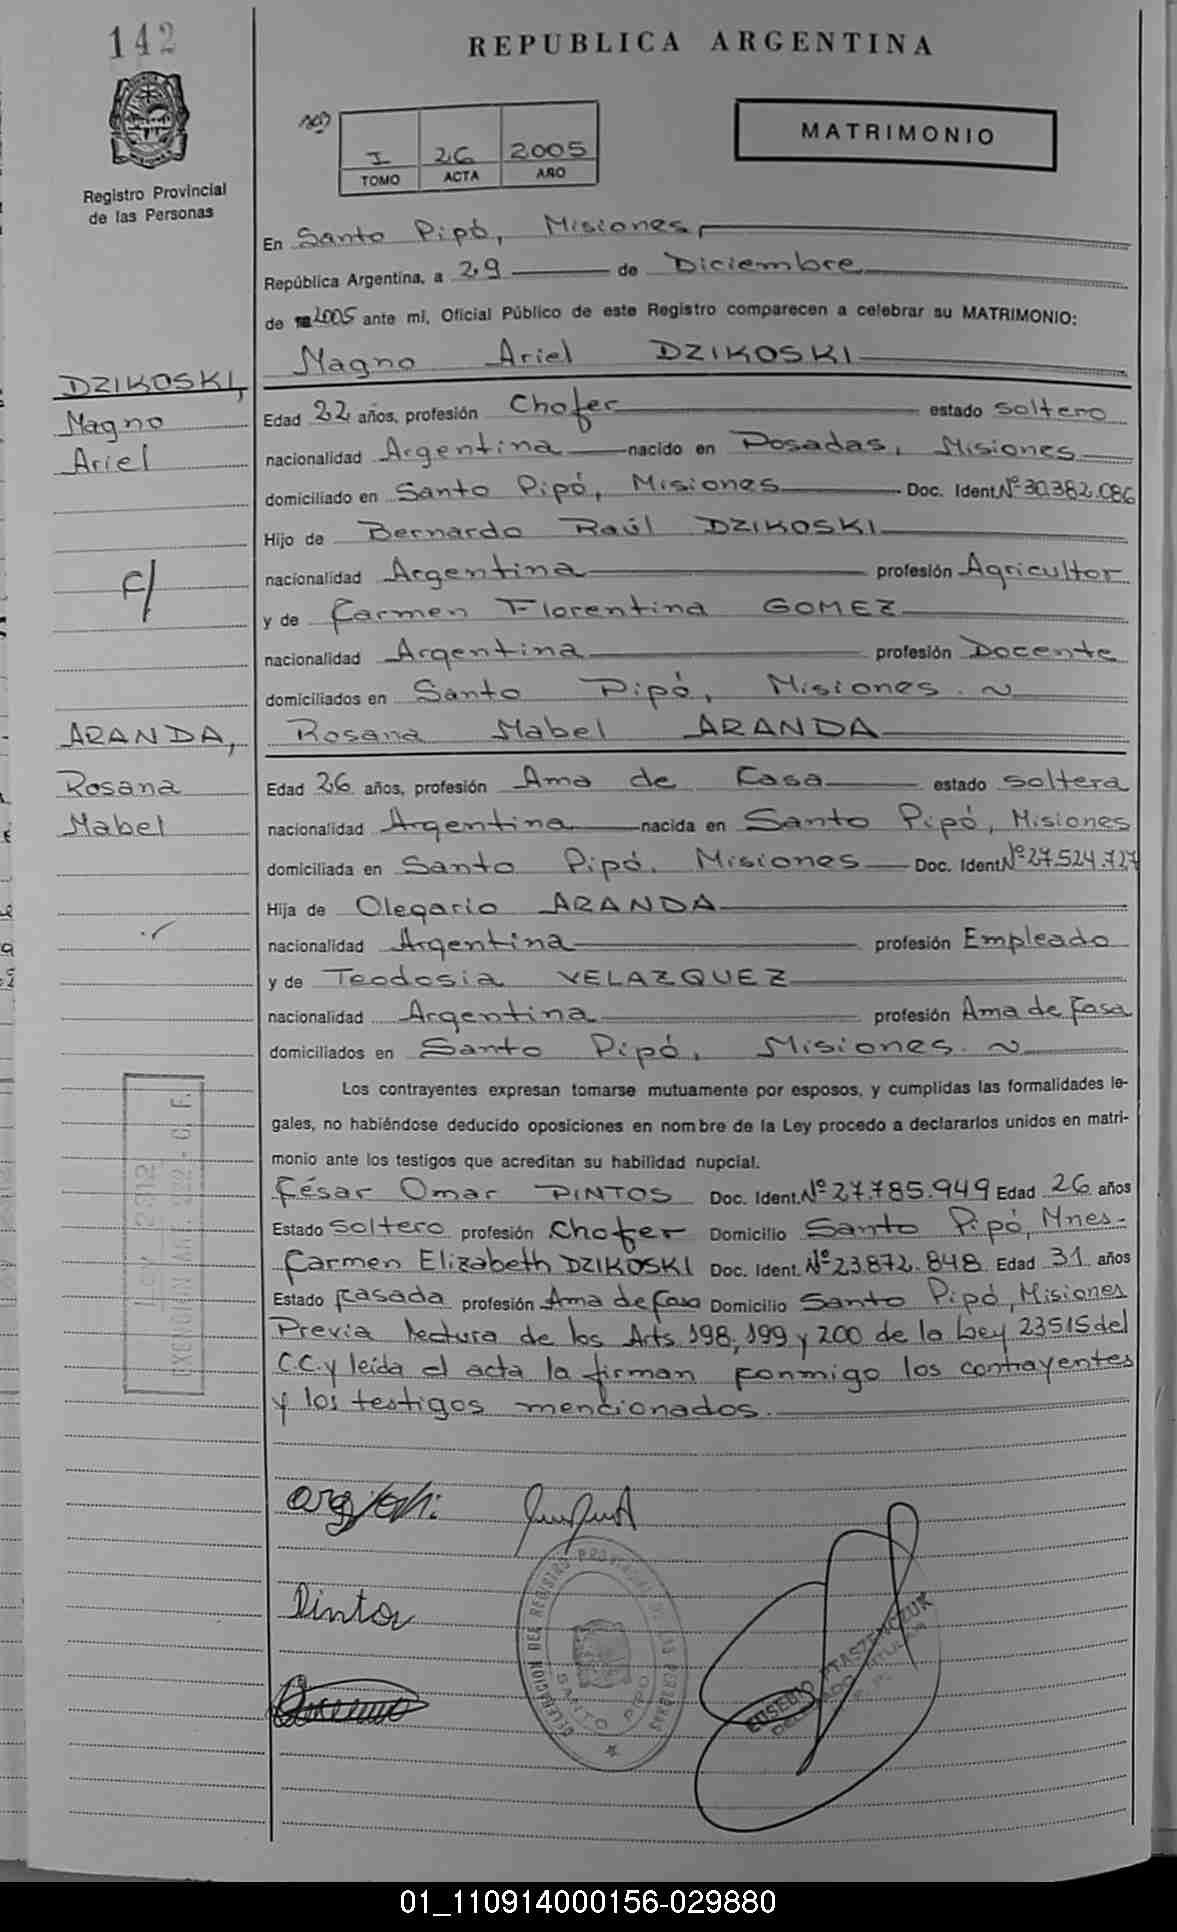 142
REPUBLICA ARGENTINA
I 26 2005
TOMO ACTA AÑO
MATRIMONIO
Registro Provincial
de las Personas
En Santo Pipó, Misiones,
República Argentina, a 29 de Diciembre
de 2005 ante mí, Oficial Público de este Registro comparecen a celebrar su MATRIMONIO:
Magno Ariel DZIKOSKI
DZIKOSKI,
Magno
Ariel
Edad 22 años, profesión Chofer estado soltero
nacionalidad Argentina nacido en Posadas, Misiones
domiciliado en Santo Pipó, Misiones Doc. Ident. Nº 30.382.086
Hijo de Bernardo Raúl DZIKOSKI
c/
nacionalidad Argentina profesión Agricultor
y de Carmen Florentina GOMEZ
nacionalidad Argentina profesión Docente
domiciliados en Santo Pipó, Misiones. ~
ARANDA,
Rosana
Mabel
Rosana Mabel ARANDA
Edad 26 años, profesión Ama de Casa estado soltera
nacionalidad Argentina nacida en Santo Pipó, Misiones
domiciliada en Santo Pipó, Misiones Doc. Ident. Nº 27.524.727
Hija de Olegario ARANDA
nacionalidad Argentina profesión Empleado
y de Teodosia VELAZQUEZ
nacionalidad Argentina profesión Ama de Casa
domiciliados en Santo Pipó, Misiones. ~
Los contrayentes expresan tomarse mutuamente por esposos, y cumplidas las formalidades le-
gales, no habiéndose deducido oposiciones en nombre de la Ley procedo a declararlos unidos en matri-
monio ante los testigos que acreditan su habilidad nupcial.
César Omar PINTOS Doc. Ident. Nº 27.785.949 Edad 26 años
Estado soltero profesión Chofer Domicilio Santo Pipó, Mnes.
Carmen Elizabeth DZIKOSKI Doc. Ident. Nº 23.872.848 Edad 31 años
Estado casada profesión Ama de Casa Domicilio Santo Pipó, Misiones
Previa lectura de los Arts. 198, 199 y 200 de la Ley 23515 del
C.C. y leída el acta la firman conmigo los contrayentes
y los testigos mencionados.
Pintos
DELEGACION DEL REGISTRO PROVINCIAL DE LAS PERSONAS
SANTO PIPO
EUSEBIO PTASZENCZUK
01_110914000156-029880